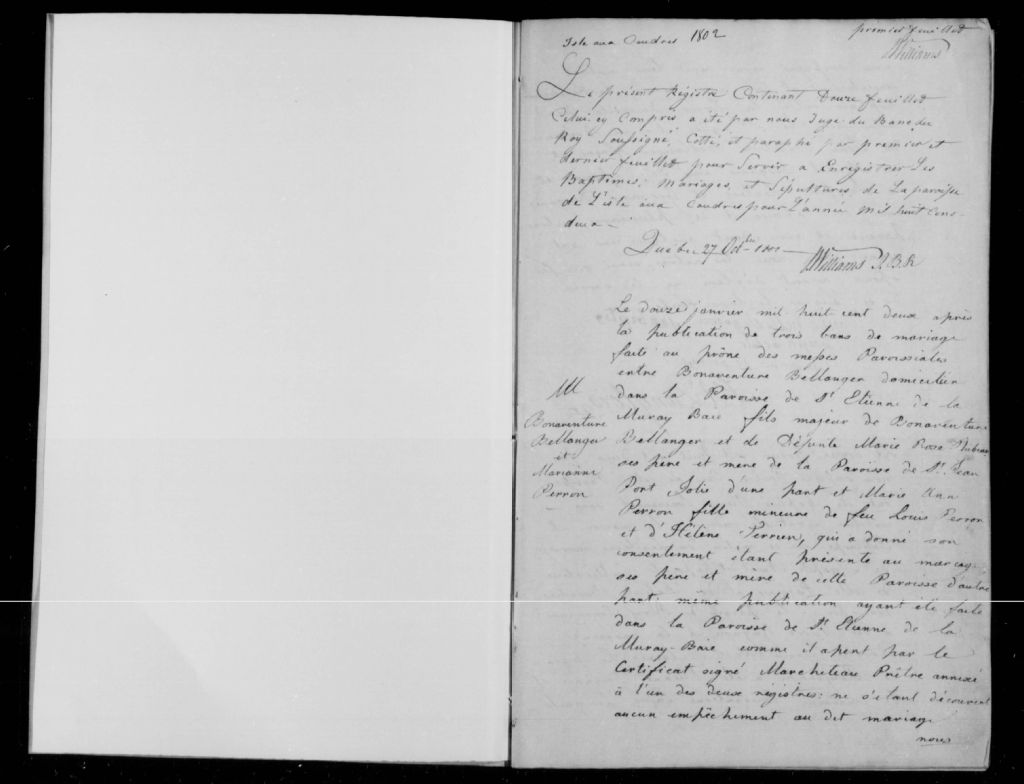 Isle aux Coudres 1802
premier feuillet
Williams
Le présent Régistre Contenant Douze feuillet
Celui cy Compris a été par nous Juge du Banc du
Roy Soussigné, Cotté, et paraphé par premier et
dernier feuillet pour Servir a Enregistrer Les
Baptêmes, Mariages, et Sépultures de La paroisse
de L'isle aux Coudres pour L'année mil huit Cens
deux —
Québec 27 Octbre 1801 —
Williams J.B.R
M
Bonaventure
Bellanger
et
Marianne
Perron
Le douze janvier mil huit cent deux après
la publication de trois bans de mariage
faite au prône des messes Paroissiales
entre Bonaventure Bellanger domicilié
dans la Paroisse de St. Etienne de la
Muray Baie fils majeur de Bonaventure
Bellanger et de Défunte Marie Rose
ses père et mere de la Paroisse de St. Jean
Port Jolie d'une part et Marie Ann
Perron fille mineure de feu Louis Perron
et d'Hélène Terrien, qui a donné son
consentement étant présente au mariage
ses père et mère de cette Paroisse d'autre
part, même publication ayant été faite
dans la Paroisse de St. Etienne de la
Muray-Baie comme il apert par le
Certificat signé Marchiteau Prêtre annexé
à l'un des deux régistres: ne s'étant découvert
aucun empêchement au dit mariage
nous